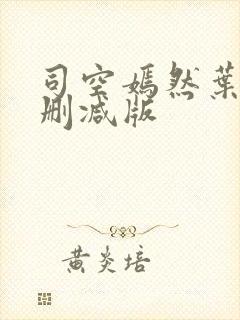 司空嫣然葉
删减版
黄炎培